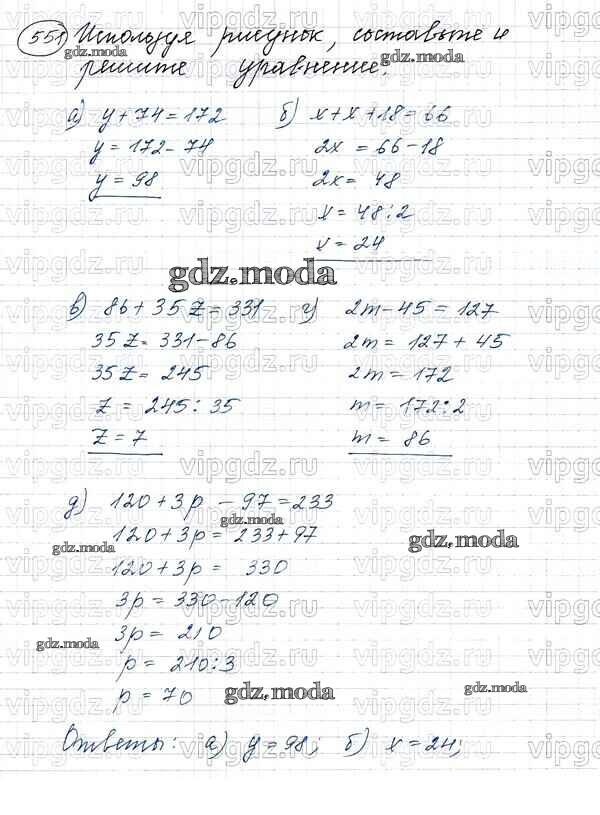 551 Используя рисунок, составьте и
решите уравнение.
а) y + 74 = 172
y = 172 - 74
y = 98
б) x + x + 18 = 66
2x = 66 - 18
2x = 48
x = 48 : 2
x = 24
gdz.moda
в) 86 + 35z = 331
35z = 331 - 86
35z = 245
z = 245 : 35
z = 7
г) 2m - 45 = 127
2m = 127 + 45
2m = 172
m = 172 : 2
m = 86
д) 120 + 3p - 97 = 233
120 + 3p = 233 + 97
120 + 3p = 330
3p = 330 - 120
3p = 210
p = 210 : 3
p = 70
Ответы: а) y = 98; б) x = 24;
gdz.moda
vipgdz.ru